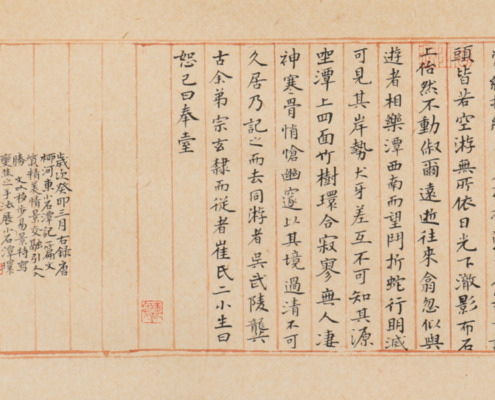 頭皆若空游無所依日光下澈影布石
上佁然不動俶爾遠逝往來翕忽似與
遊者相樂潭西南而望鬥折蛇行明滅
可見其岸勢犬牙差互不可知其源
坐潭上四面竹樹環合寂寥無人凄
神寒骨悄愴幽邃以其境過清不可
久居乃記之而去同游者吳武陵龔
古余弟宗玄隸而從者崔氏二小生曰
恕己曰奉壹
歲次癸卯三月古錄唐
柳河東石潭記一篇文
質精美情景交融引人入
勝文以移步易景特寫
之手法展小石潭